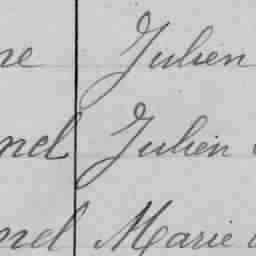 ne Julien
nel Julien
nel Marie